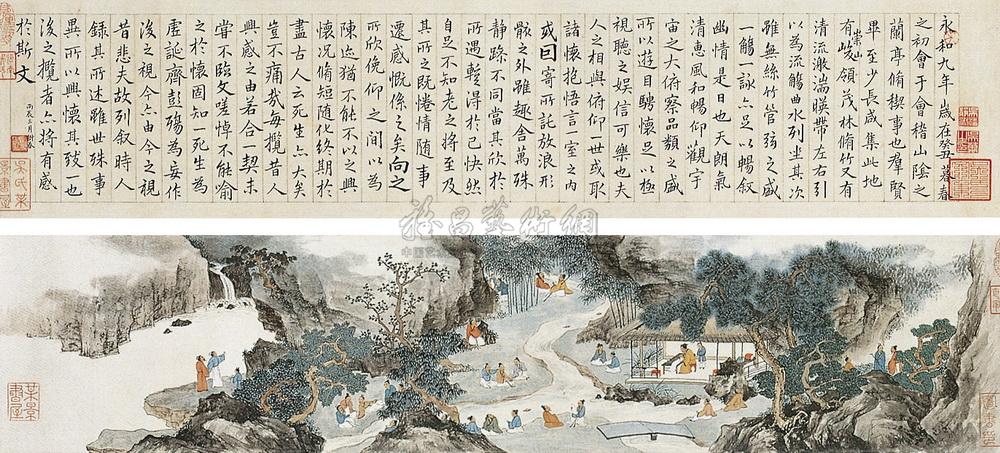 永和九年歲在癸丑暮春
之初會于會稽山陰之
蘭亭脩稧事也群賢
畢至少長咸集此地
有崇山峻領茂林脩竹又有
清流激湍暎帶左右引
以為流觴曲水列坐其次
雖無絲竹管弦之盛
一觴一詠亦足以暢叙
幽情是日也天朗氣
清惠風和暢仰觀宇
宙之大俯察品類之盛
所以遊目騁懷足以極
視聽之娛信可樂也夫
人之相與俯仰一世或取
諸懷抱悟言一室之內
或因寄所託放浪形
骸之外雖趣舍萬殊
靜躁不同當其欣於
所遇暫得於己快然
自足不知老之將至及
其所之既惓情隨事
遷感慨係之矣向之
所欣俛仰之間以為
陳迹猶不能不以之興
懷況脩短隨化終期於
盡古人云死生亦大矣
豈不痛哉每攬昔人
興感之由若合一契未
甞不臨文嗟悼不能喻
之於懷固知一死生為
虛誕齊彭殤為妄作
後之視今亦由今之視
昔悲夫故列叙時人
錄其所述雖世殊事
異所以興懷其致一也
後之攬者亦將有感
於斯文